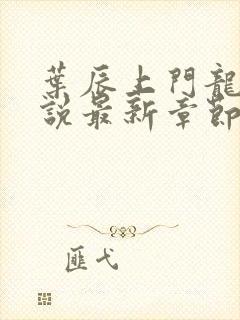 葉辰上門龍
說最新章節
匪弋